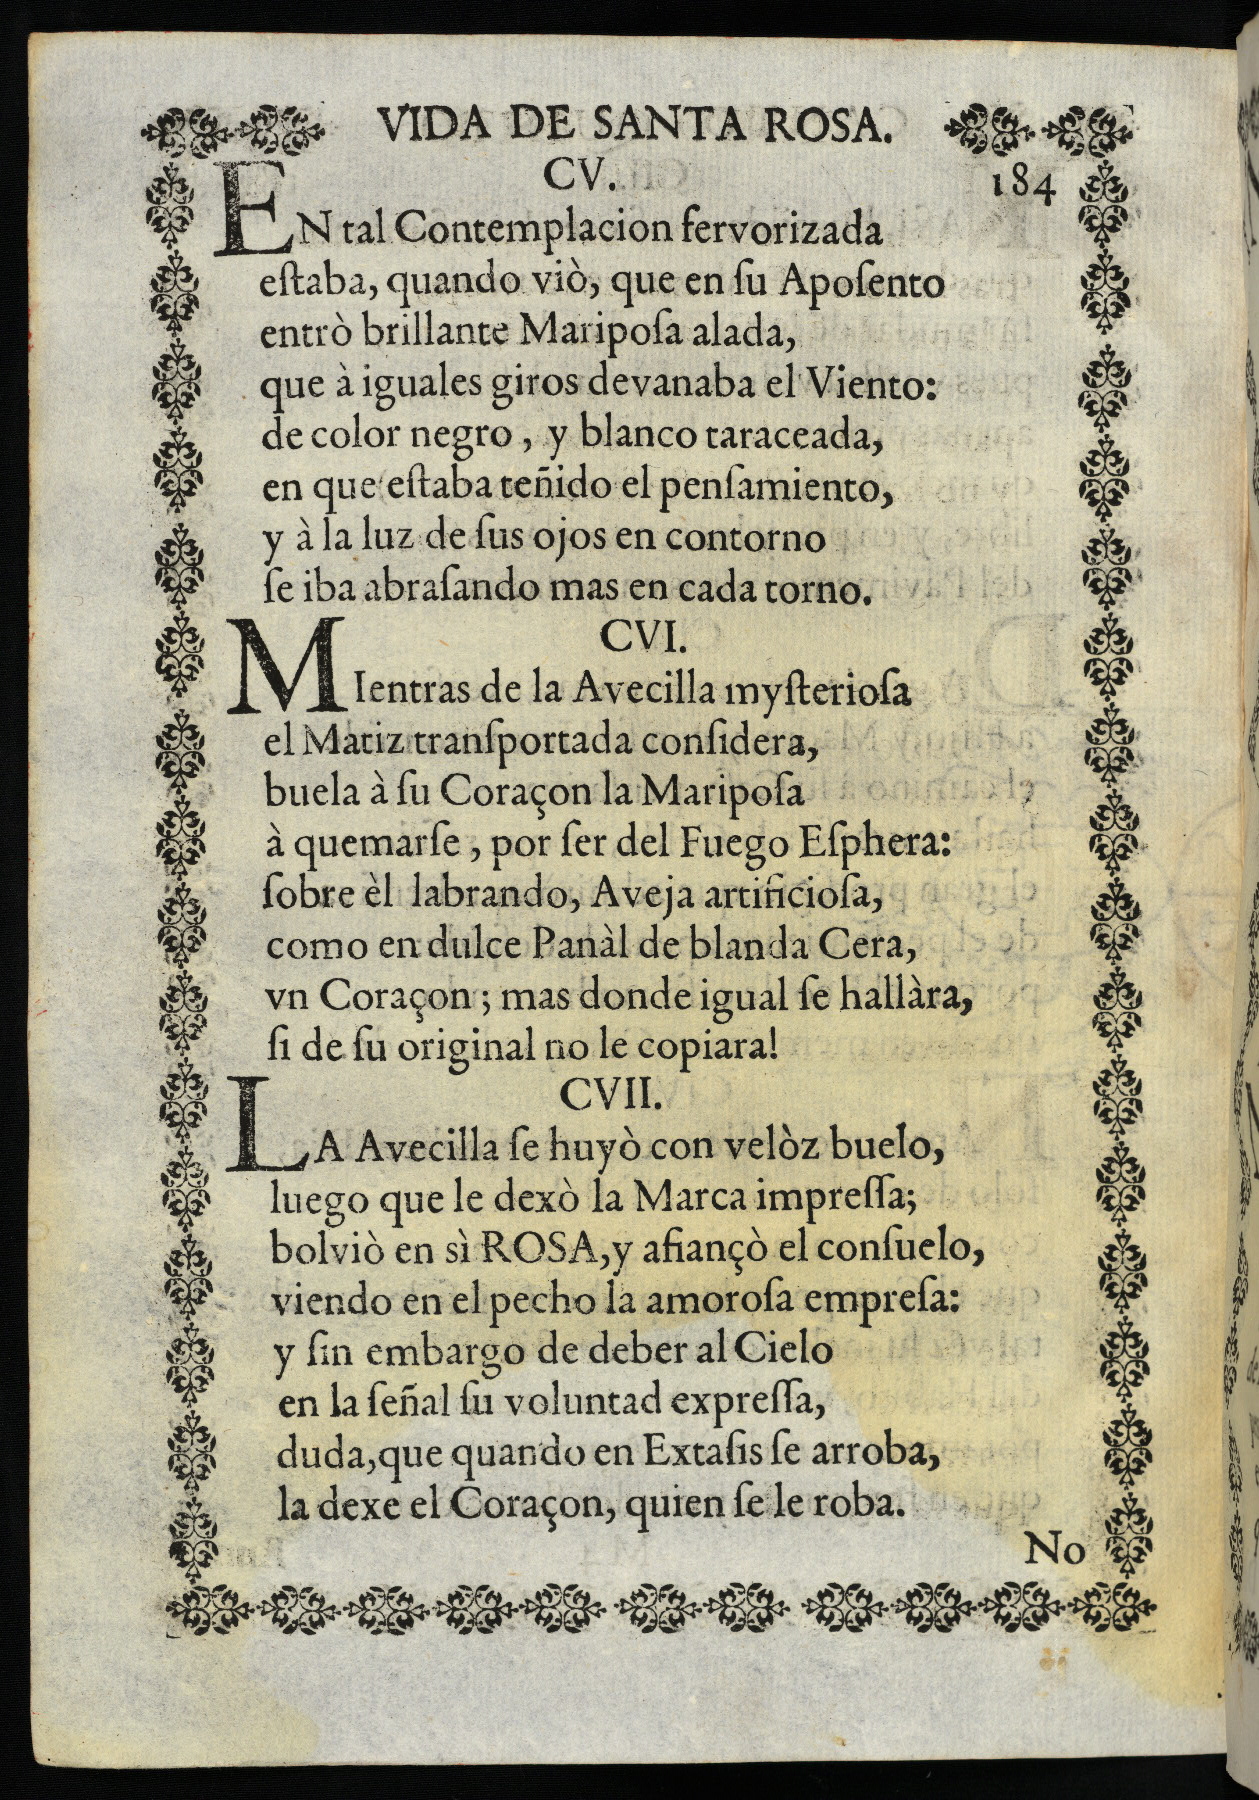 VIDA DE SANTA ROSA.
CV.
184
EN tal Contemplacion fervorizada
eſtaba, quando viò, que en ſu Apoſento
entrò brillante Maripoſa alada,
que à iguales giros devanaba el Viento:
de color negro, y blanco taraceada,
en que eſtaba teñido el penſamiento,
y à la luz de ſus ojos en contorno
ſe iba abraſando mas en cada torno.
CVI.
MIentras de la Avecilla myſterioſa
el Matiz tranſportada conſidera,
buela à ſu Coraçon la Maripoſa
à quemarſe, por ſer del Fuego Eſphera:
ſobre èl labrando, Aveja artificioſa,
como en dulce Panàl de blanda Cera,
vn Coraçon; mas donde igual ſe hallàra,
ſi de ſu original no le copiara!
CVII.
LA Avecilla ſe huyò con velòz buelo,
luego que le dexò la Marca impreſſa;
bolviò en sì ROSA, y afiançò el conſuelo,
viendo en el pecho la amoroſa empreſa:
y ſin embargo de deber al Cielo
en la ſeñal ſu voluntad expreſſa,
duda, que quando en Extaſis ſe arroba,
la dexe el Coraçon, quien ſe le roba.
No